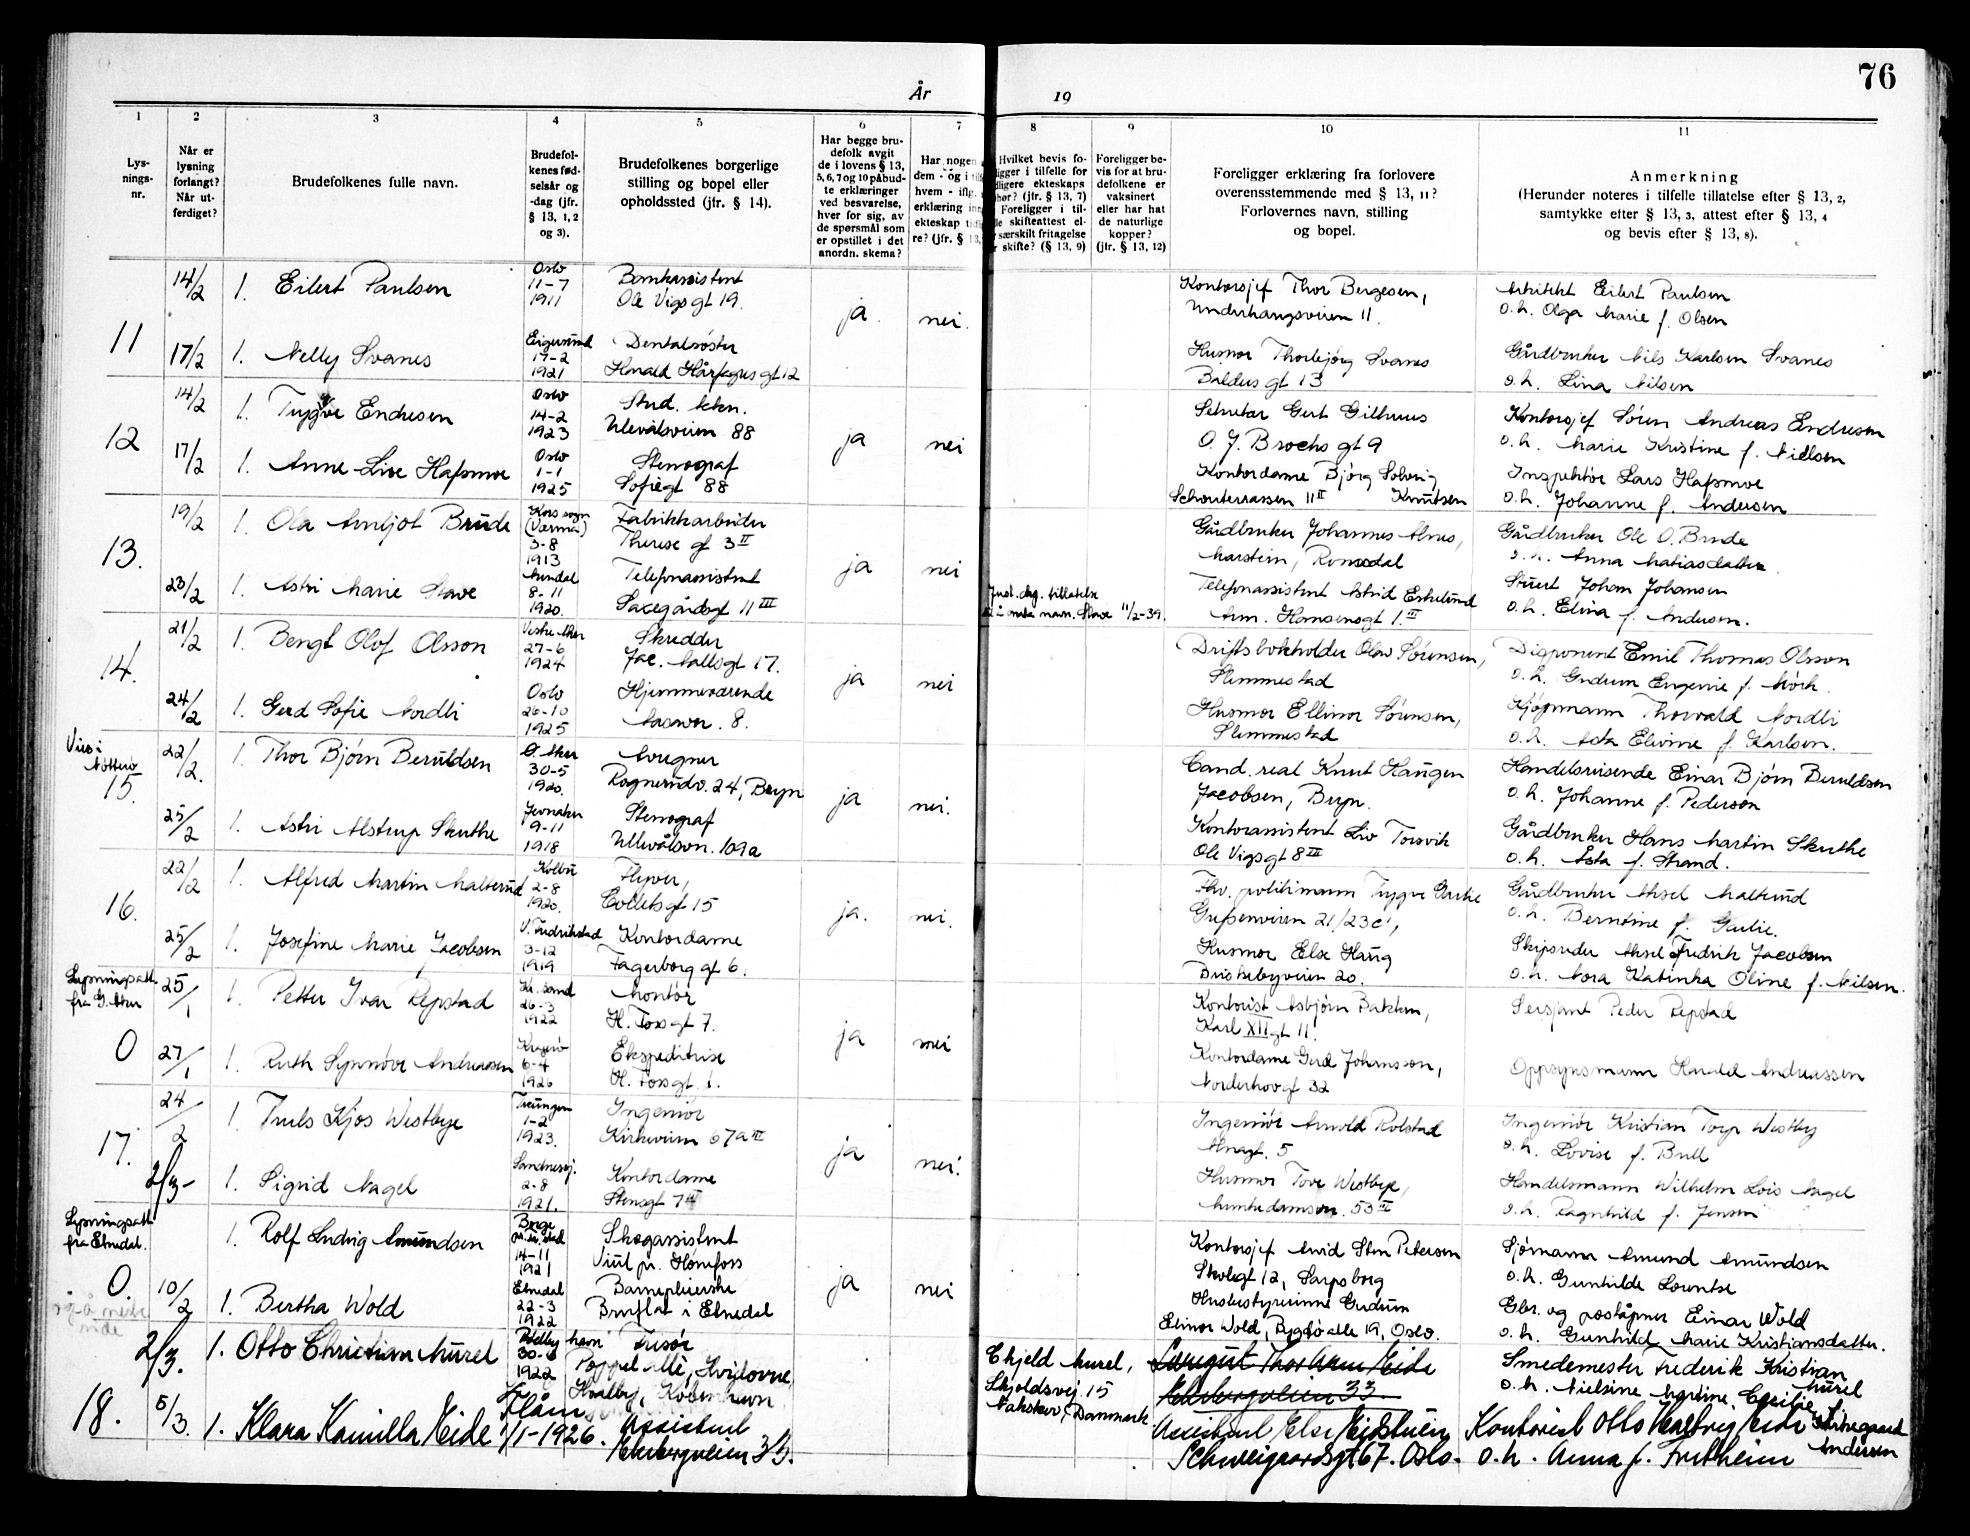 76
År
19
1
2
3
4
5
6
7
8
9
10
11
Lys-
nings-
nr.
Når er
lysning
forlangt?
Når ut-
ferdiget?
Brudefolkenes fulle navn.
Brudefol-
kenes fød-
selsår og
-dag (jfr.
§ 13, 1, 2
og 3).
Brudefolkenes borgerlige
stilling og bopel eller
opholdssted (jfr. § 14).
Har begge bru-
defolk avgit
de i lovens § 13,
5, 6, 7 og 10 påbud-
te erklæringer
ved besvarelse,
hver for sig, av
de spørsmål som
er opstillet i det
anordn. skema?
Har nogen
dem - og i
hvem - iflg.
erklæring
ekteskap
re? (jfr. § 13,
Hvilket bevis fo-
ligger i tilfelle for
ligere ekteskaps
hør? (jfr. § 13, 7)
Foreligger i til-
le skifteattest el-
særskilt fritagelse
skifte? (§ 13, 9)
Foreligger be-
vis for at bru-
defolkene er
vaksinert
eller har hat
de naturlige
kopper?
(jfr. § 13, 12)
Foreligger erklæring fra forlovere
overensstemmende med § 13, 11?
Forlovernes navn, stilling
og bopel.
Anmerkning
(Herunder noteres i tilfelle tillatelse efter § 13, 2,
samtykke efter § 13, 3, attest efter § 13, 4
og bevis efter § 13, 8).
11
14/2 1. Eilert Paulsen
Oslo
11-7
1911
Bankassistent
Ole Vigsgt 19.
ja.
nei.
Kontorsjef Thor Bergesen,
Underhaugsveien 11.
Arkitekt Eilert Paulsen
o.h. Olga Marie f. Olsen
17/2 1. Nelly Svanes
Eigersund
17-2
1921
Dentalsøster
Harald Hårfagres gt 12
Husmor Thorbjørg Svanes
Balders gt 13
Gårdbruker Nils Karlsen Svanes
o.h. Lina Nilsen
12
14/2 1. Trygve Endresen
Oslo
14-2
1923
Stud. tekn.
Ulevålsveien 88
ja
nei
Sekretær Gert Gilhuus
O. J. Brochs gt 9
Kontorsjef Søren Andreas Endresen
o.h. Marie Kristine f. Niellsen
17/2 1. Anne-Lise Hafsmoe
Oslo
1-1
1925
Stenograf
Sofiegt 88
Kontordame Bjørg Solveig
Schouterrassen 11 II Knutsen
Inspektør Lars Hafsmoe
o.h. Johanne f. Andersen
13.
19/2 1. Ola Arnljot Brude
Kors sogn
3-8
1913
Fabrikkarbeider
Therese gt 3 II
ja
nei
Gårdbruker Johannes Alnes,
Marstein, Romsdal
Gårdbruker Ole O. Brude
o.h. Anna Matiasdatter
23/2 1. Astri Marie Stave
Arendal
8-11
1920.
Telefonassistent
Saxegårdsgt 11 III
Just. dep. tillatelse
navn. Stave 11/2-39.
Telefonassistent Astrid Eskelund
Arm. Hansensgt 1. II
Stuert Johan Johansen
o.h. Elina f. Andersen.
14.
21/2 1. Bengt Olof Olsson
Vestre Aker
27-6
1924
Skredder
Jac. Aallsgt 17.
ja
nei
Driftsbokholder Olav Sørensen,
Slemmestad
Disponent Emil Thomas Olsson
o.h. Gudrun Engenie f. Mörk.
24/2 1. Gerd Sofie Nordli
Oslo
26-10
1925
Hjemmeværende
Aasavn. 8.
Husmor Ellinor Sørensen,
Slemmestad
Kjøpmann Thorvald Nordli
o.h. Asta Elvine f. Karlsen.
Vies i
Nøtterø
15.
22/2. 1. Thor Bjørn Beruldsen
Ø. Aker
30-5
1920.
Avregner
Rognerudv. 24, Bryn
ja
nei.
Cand. real Knut Haugen
Jacobsen, Bryn.
Handelsreisende Einar Bjørn Beruldsen
o.h. Johanne f. Pederson
25/2 1. Astri Alstrup Skuthe
Jevnaker
9-11
1918
Stenograf
Ullevålson. 109a
Kontorassistent Liv Torsvik
Ole Vigsgt 8 III
Gårdbruker Hans Martin Skuthe
o.h. Åsta f. Strand.
16.
22/2 1. Alfred Martin Malterud
Kolbu
2-8
1920.
Flyver,
Colletsgt 15
ja.
nei.
Fhv. politimann Trygve Gaulie
Grefsenveien 21/23c,
Gårdbruker Aksel Malterud
o.h. Berntine f. Gaulie.
25/2 1. Josefine Marie Jacobsen
V. Fredrikstad
3-12
1919
Kontordame
Fagerborg gt 6.
Husmor Else Haug
Briskebyveien 20.
Skipsreder Aksel Fredrik Jacobsen
o.h. Nora Katinka Oline f. Nilsen.
Lysningsatt.
fra G. Aker
0
25/1 1. Petter Ivar Repstad
Kr. sand
26-3
1922
Montør
H. Tossgt 7.
ja
nei
Kontorist Asbjørn Bakken,
Karl XII gt 11
Sersjant Peder Repstad
27/1 1. Ruth Synnøve Andreassen
Kragerø
6-4
1926
Ekspeditrise
H. Tossgt. 1.
Kontordame Gerd Johansson,
Norderhovgt 32
Oppsynsmann Harald Andreassen
17.
24/2 1. Truls Kjos Westbye
Treungen
1-2
1923.
Ingeniør
Kirkeveien 67a III
ja
nei.
Ingeniør Arnold Rolstad
Almagt. 5
Ingeniør Kristian Torp Westby
o.h. Lovise f. Bull
2/3- 1. Sigrid Nagel
Sandnessj.
2-8
1921.
Kontordame
Stensgt 7
Husmor Tove Westbye,
Munkedamsvn. 53 III
Handelsmann Wilhelm Lois Nagel
o.h. Ragnhild f. Jensen
Lysningsatt
fra Etnedal.
0.
1. Rolf Ludvig Amundsen
Borge
14-11
1921
Skogassistent
Viul pr. Hønefoss
ja
nei
Kontorsjef Arvid Sten Petersen
Skolegt 12, Sarpsborg
Sjømann Amund Amundsen
o.h. Gunhilde Lorentse
også neste
side
10/2 1. Bertha Wold
Etnedal
22-3
1922
Barnepleierske
Bruflat i Etnedal
Husbestyrerinne Gudrun
Elinor Wold, Bygdø alle 19, Oslo.
Gbr. og poståpner Einar Wold
o.h. Gunhild Marie Kristiansdatter.
18.
2/3. 1. Otto Christian Aurel
30-6
1922
Frisør
Poppel alle, Hvidovre,
Hvalby, København
Ekjeld Aurel,
Skjoldsvej 15
Nakskov, Danmark
Ekebergveien 33
Smedemester Frederik Kristian
Aurel
o.h. Nielsine Martine Cecilie f.
Kirkegaard
Andersen
5/3 1. Klara Kamilla Eide
Flåm
1/1-1926.
Assistent
Ekebergveien 33.
Assistent Else Eidstuen
Schweigaardsgt 67. Oslo.
Kontorist Otto Hartvig Eide
o.h. Anna f. Fretheim